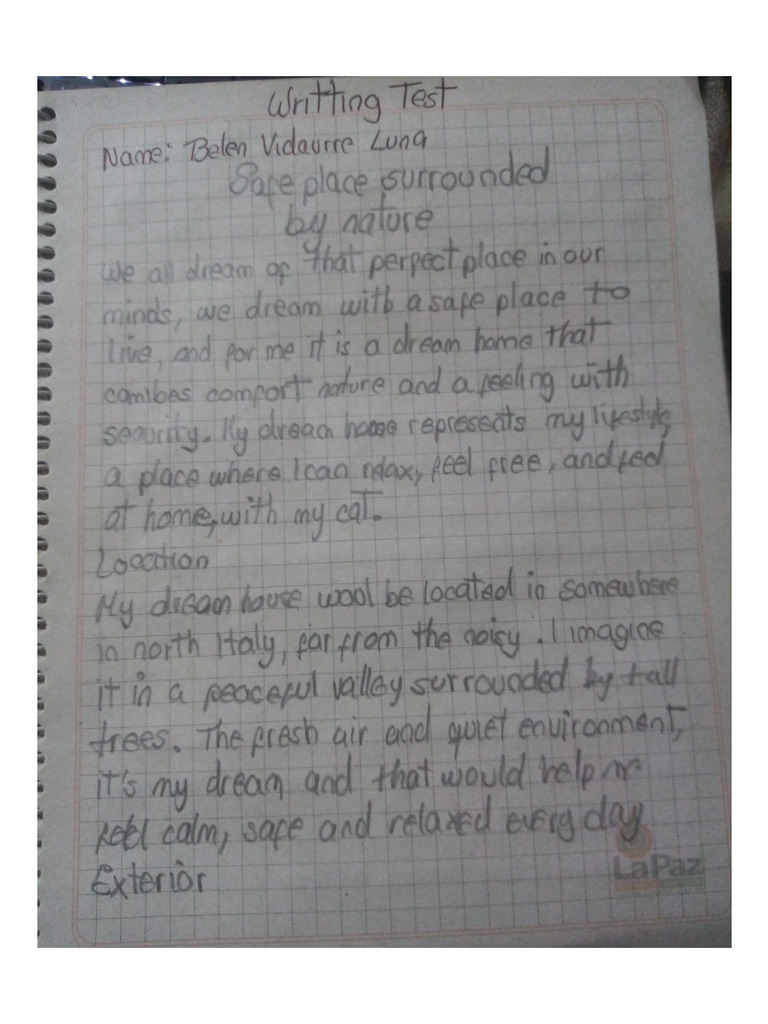 Writting Test
Name: Belen Vidaurre Luna
Safe place surrounded
by nature
We all dream of that perfect place in our
minds, we dream with a safe place to
live, and for me it is a dream home that
comibes comfort nature and a feeling with
security. My dream house represects my lifestyle,
a place where I can relax, feel free, and feel
at home, with my cat.
Location
My dream house wool be located in somewhere
in north Italy, far from the noisy. I imagine
it in a peaceful valley surrounded by tall
trees. The fresh air and quiet environment,
it's my dream, and that would help me
feel calm, safe and relaxed every day
Exterior
LaPaz